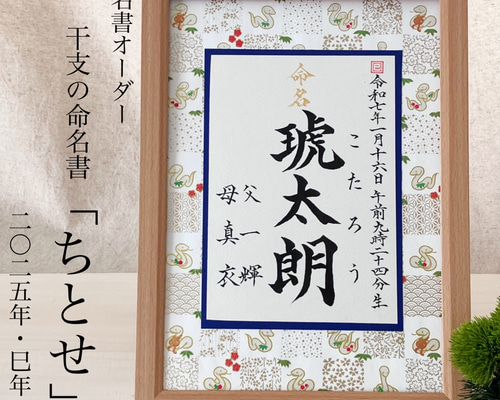 名書オーダー
干支の命名書
「ちとせ」
二〇二五年・巳年
命名
令和七年一月十六日 午前九時二十四分生
こたろう
琥太朗
父 一輝
母 真衣